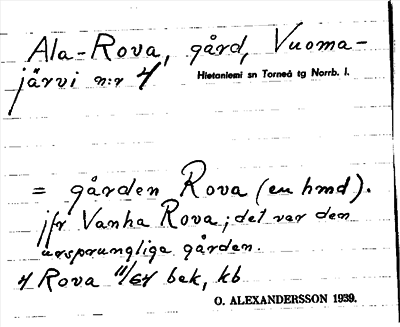 Ala-Rova, gård, Vuoma-
järvi n:r 4 Hietaniemi sn Torneå tg Norrb. l.
= gården Rova (en hmd).
jfr Vanha Rova; det var den
ursprungliga gården.
4 Rova 11/64 bek, kb
O. ALEXANDERSSON 1939.